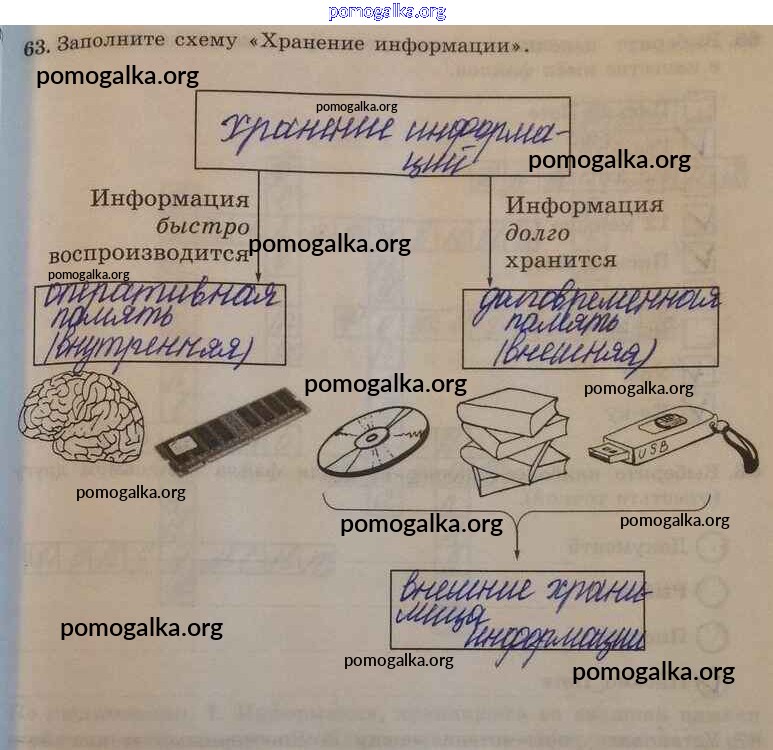 pomogalka.org
63. Заполните схему «Хранение информации».
pomogalka.org
pomogalka.org
хранение информа-
ций
pomogalka.org
Информация
быстро
воспроизводится
Информация
долго
хранится
pomogalka.org
pomogalka.org
оперативная
память
(внутренняя)
долговременная
память
(внешняя)
pomogalka.org
pomogalka.org
USB
pomogalka.org
pomogalka.org
pomogalka.org
внешние храни-
лища
информации
pomogalka.org
pomogalka.org
pomogalka.org